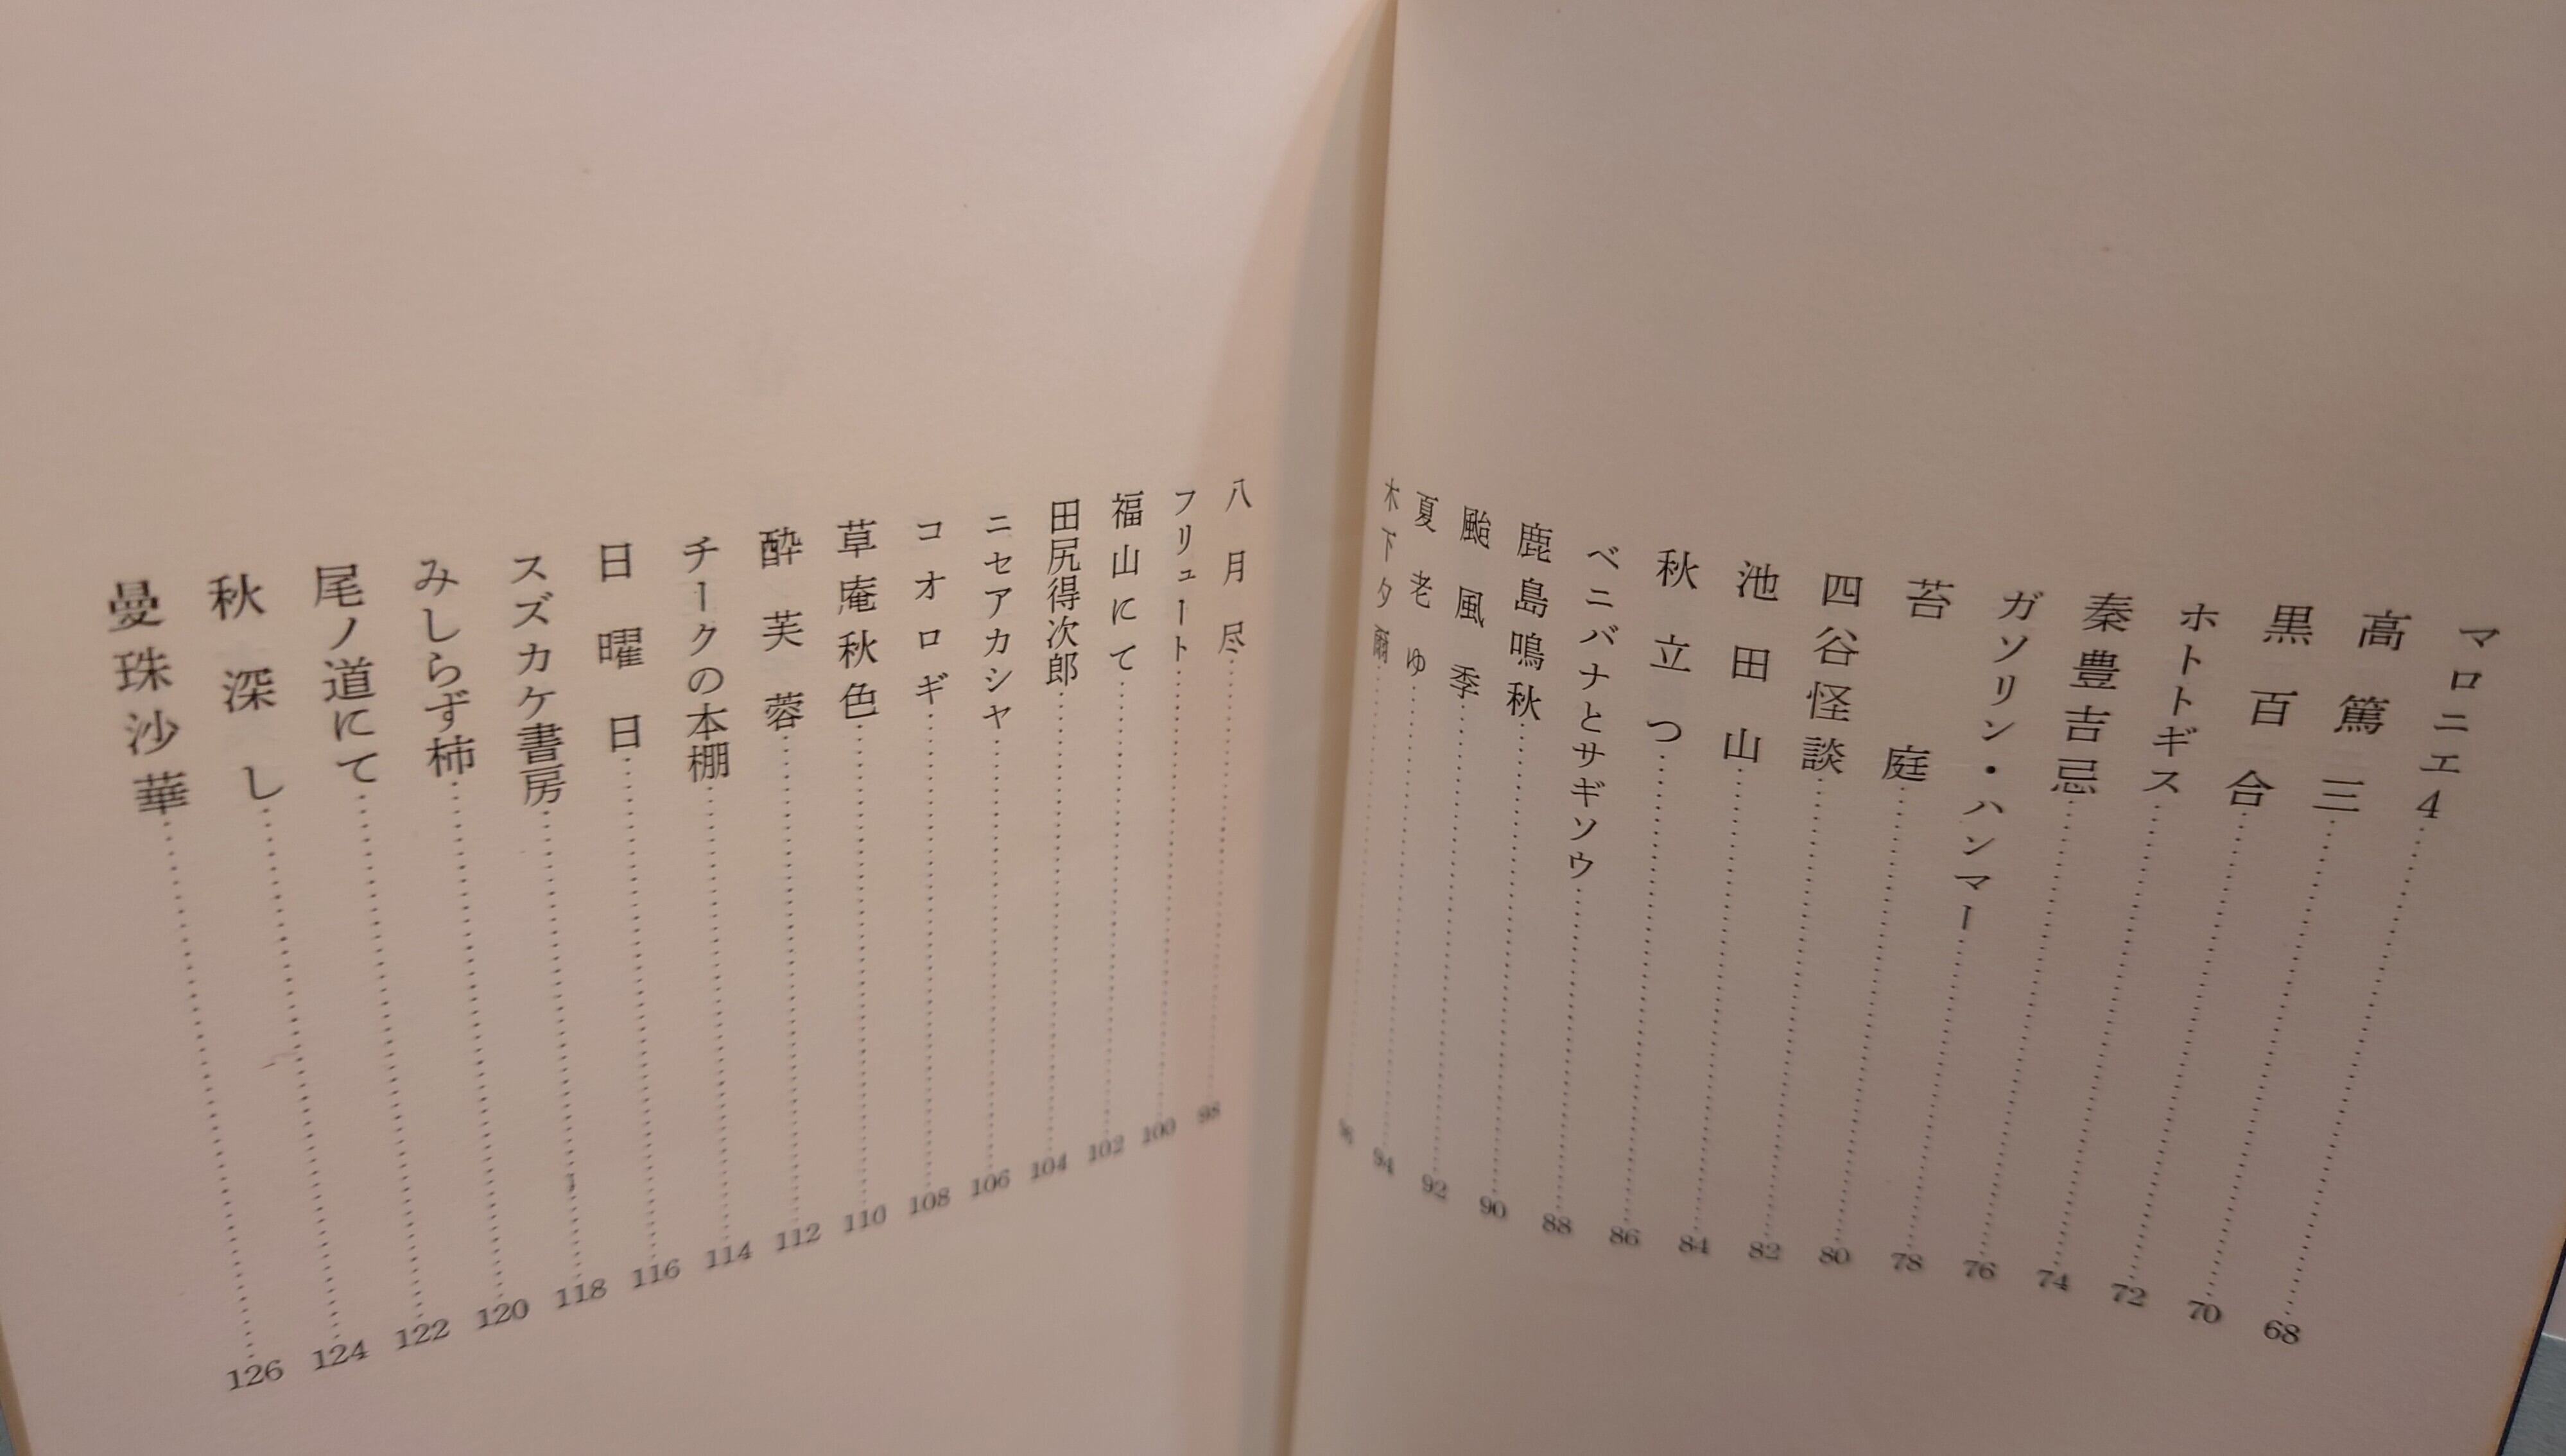 マロニエ4……68
高篤三……70
黒百合……72
ホトトギス……74
秦豊吉忌……76
ガソリン・ハンマー……78
苔庭……80
四谷怪談……82
池田山……84
秋立つ……86
ベニバナとサギソウ……88
鹿島鳴秋……90
颱風季……92
夏老ゆ……94
木下夕爾……96
八月尽……98
フリュート……100
福山にて……102
田尻得次郎……104
ニセアカシヤ……106
コオロギ……108
草庵秋色……110
酔芙蓉……112
チークの本棚……114
日曜日……116
スズカケ書房……118
みしらず柿……120
尾ノ道にて……122
秋深し……124
曼珠沙華……126